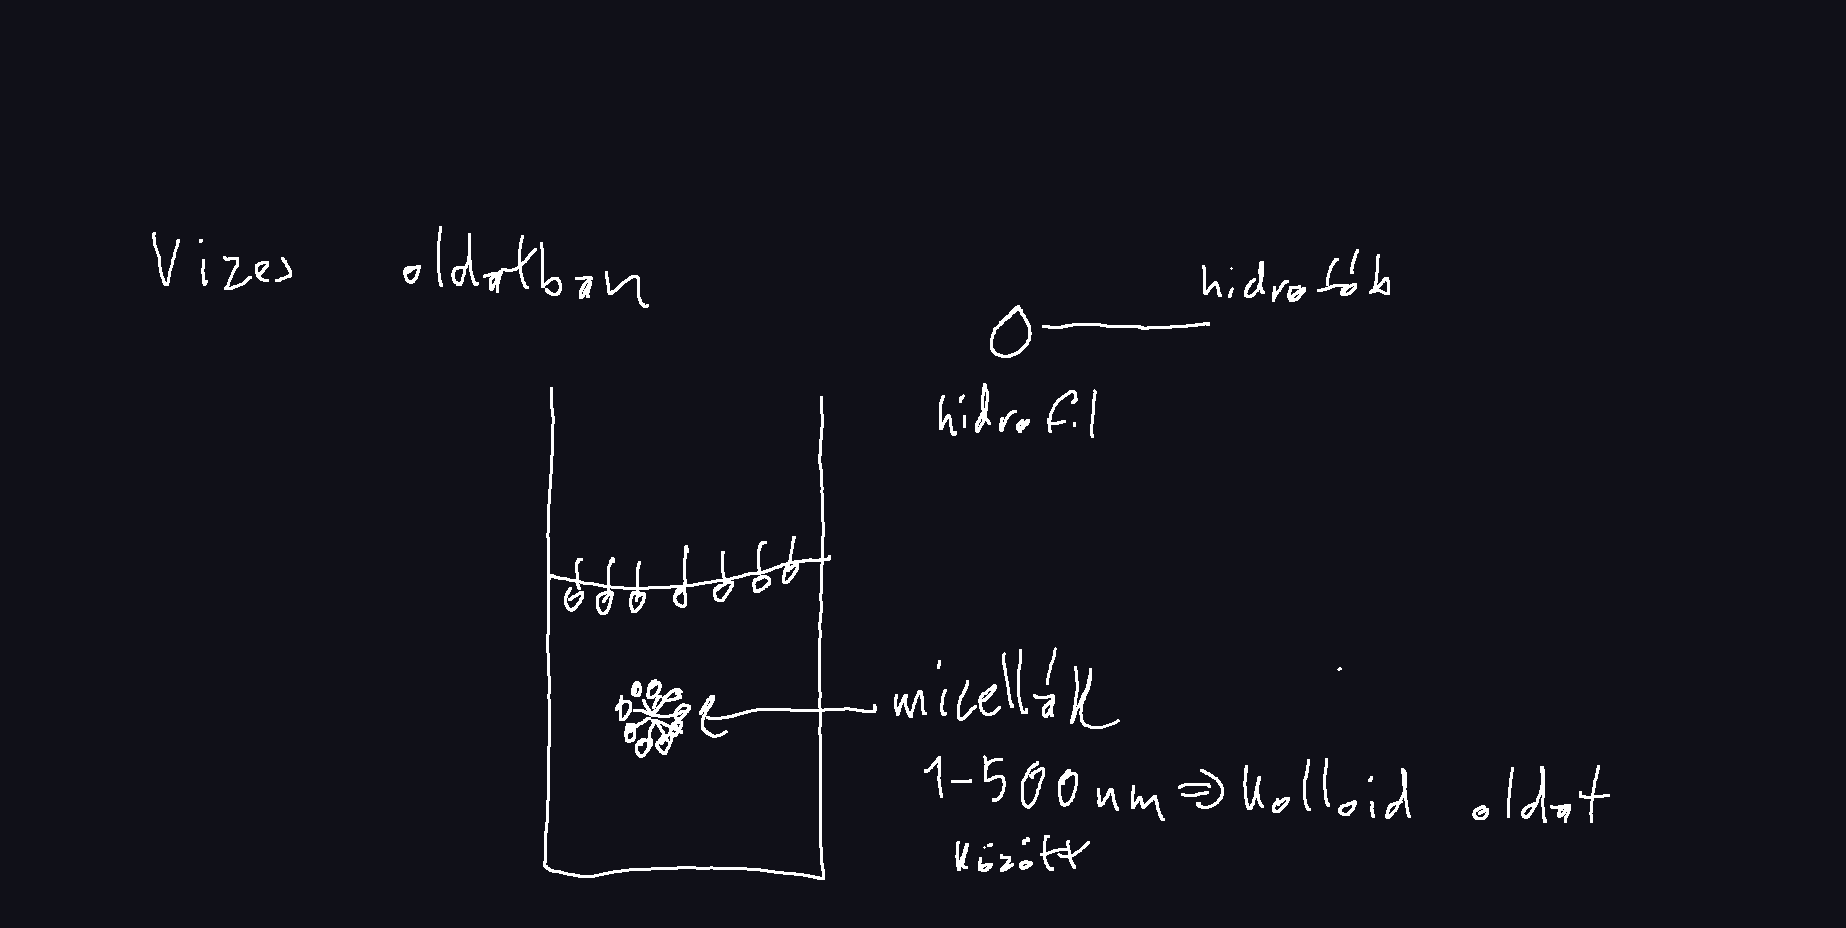 Vizes oldatban
hidrofób
hidrofil
micellák
1-500nm ⇒ kolloid oldat
között